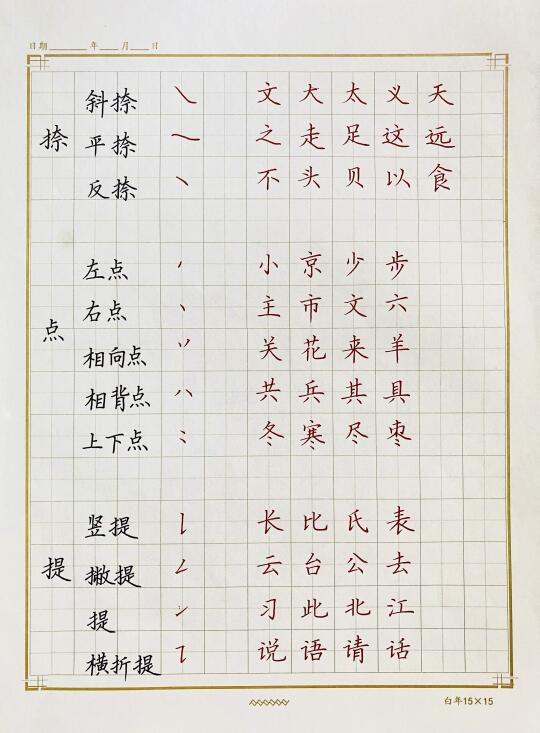 日期____年__月__日
斜捺 ㇏ 文 大 太 义 天
捺 平捺 ㇏ 之 走 足 这 远
反捺 ㇔ 不 头 贝 以 食
左点 小 京 少 步
右点 丶 主 市 文 六
点 相向点 丷 关 花 来 羊
相背点 八 共 兵 其 具
上下点 冬 寒 尽 枣
竖提 长 比 氏 表
提 撇提 云 台 公 去
提 习 此 北 江
横折提 说 语 请 话
白年15×15